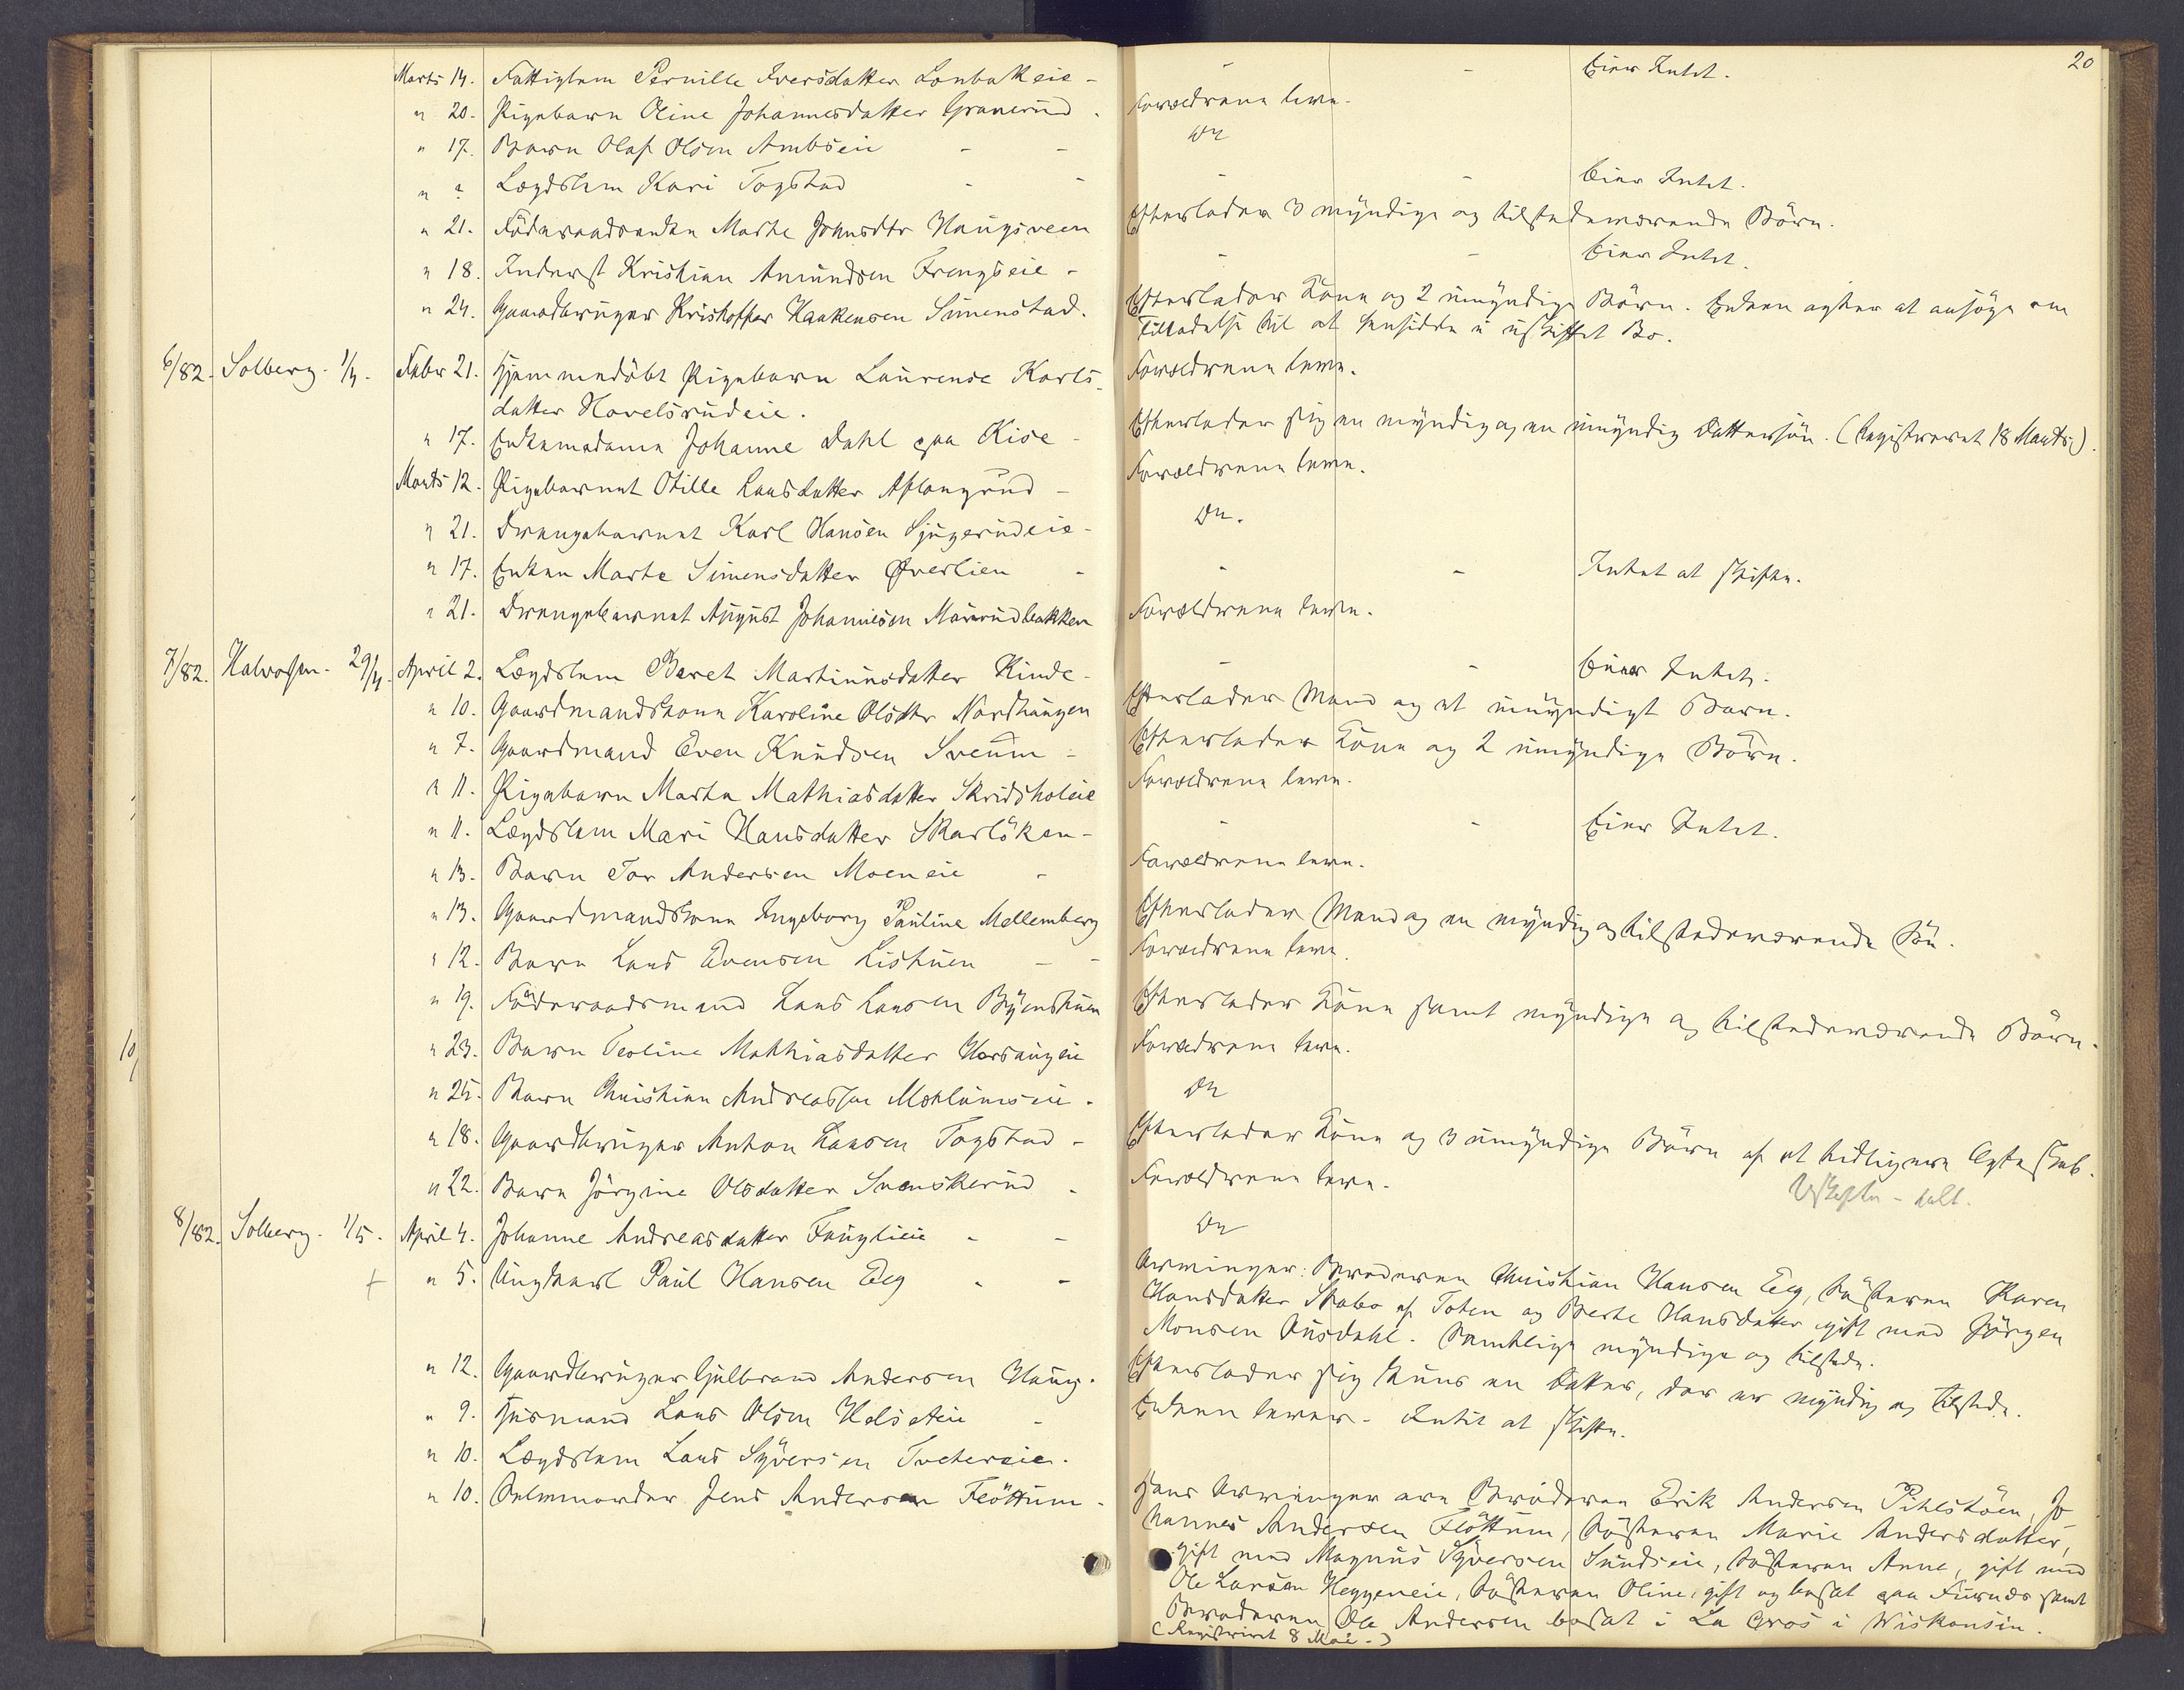 20
Marts 14. Fattiglem Pernille Iversdatter Lonbakeie - - - Eier Intet.
" 20. Pigebarn Oline Johannesdatter Granerud. Forældrene leve.
" 17. Barn Olaf Olsen Ambseie - - Do
" " Lægdslem Kari Togstad - - - - Eier Intet.
" 21. Føderaadsenken Marthe Johnsdtr Haugsveen Efterlader 3 myndige og tilstedeværende Børn.
" 18. Inderst Kristian Amundsen Frengseie - - - Eier Intet.
" 24. Gaardbruger Kristoffer Haakensen Simenstad. Efterlader Kone og 2 umyndige Børn. Enken agter at ansøge om
Tilladelse til at hensidde i uskiftet Bo.
6/82. Solberg. 1/4. Febr 21. Hjemmedøbt Pigebarn Laurense Karls- Forældrene leve.
datter Hovelsrudeie.
" 17. Enkemadame Johanne Dahl paa Kise - Efterlader sig en myndig og en umyndig Dattersøn. (Registreret 18 Marts.)
Marts 12. Pigebarnet Otille Larsdatter Aflangrud - Forældrene leve.
" 21. Drengebarnet Karl Hansen Sjugerudeie - Do.
" 17. Enken Marte Simensdatter Øverlien - - - Intet at skifte.
" 21. Drengebarnet August Johannesen Maurudbakken Forældrene leve.
7/82. Halvorsen. 29/4. April 2. Lægdslem Beret Martinusdatter Kinde - - - Eier Intet.
" 10. Gaardmandskone Karoline Olsdtr Nordhaugen Efterlader Mand og et umyndigt Barn.
" 7. Gaardmand Even Knudsen Sveum - Efterlader Kone og 2 umyndige Børn.
" 11. Pigebarn Marte Mathiasdatter Skridsholeie Forældrene leve.
" 11. Lægdslem Mari Hansdatter Skarløken - - - Eier Intet.
" 13. Barn Tor Andersen Moeneie - Forældrene leve.
" 13. Gaardmandskone Ingeborg Pauline Mellemberg Efterlader Mand og en myndig og tilstedeværende Søn.
" 12. Barn Lars Evensen Listuen - - Forældrene leve.
" 19. Føderaadsmand Lars Larsen Byenstuen Efterlader Kone samt myndige og tilstedeværende Børn.
" 23. Barn Teoline Mathiasdatter Horsaugeie Forældrene leve.
" 25. Barn Christian Andreassen Mohlumseie. Do
" 18. Gaardbruger Anton Larsen Togstad - Efterlader Kone og 3 umyndige Børn af et tidligere Ægteskab.
" 22. Barn Jørgine Olsdatter Svenskerud - Forældrene leve.
8/82. Solberg. 1/5. April 4. Johanne Andreasdatter Fauglieie - - Do
" 5. Ungkarl Paul Hansen Eeg - - Arvinger: Broderen Christian Hansen Eeg, Søsteren Karen
Hansdatter Skabo af Toten og Berte Hansdatter gift med Jørgen
Monsen Ausdahl. Samtlige myndige og tilstede.
" 12. Gaardbruger Gulbrand Andersen Haug. Efterlader sig kuns en Datter, der er myndig og tilstede.
" 9. Husmand Lars Olsen Helseteie - Enken lever. Intet at skifte.
" 10. Lægdslem Lars Syversen Tvetereie.
" 10. Selvmorder Jens Andersen Fløttum - Hans Arvinger ere Brødrene Erik Andersen Pihlstøen, Jo-
hannes Andersen Fløttum, Søsteren Marie Andersdatter,
gift med Magnus Syversen Sundseie, Søsteren Anne, gift med
Ole Larsen Heggeneie, Søsteren Oline, gift og bosat paa Furnds samt
Broderen Ole Andersen bosat i La Cros i Wiskonsin.
(Registreret 8 Mai.)